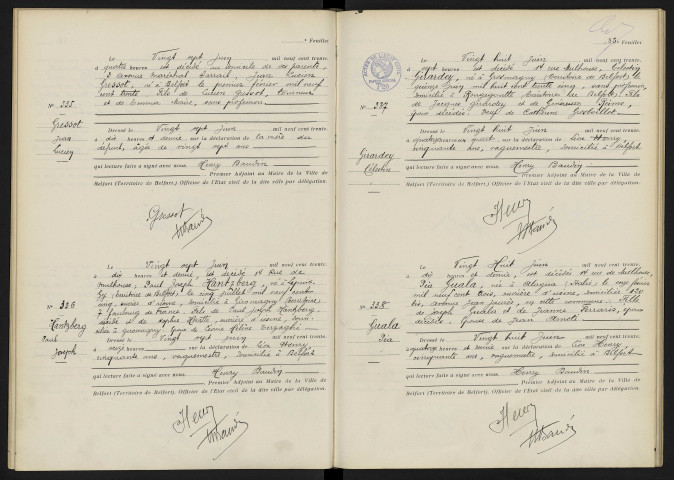 Feuillet
Le Vingt sept Juin mil neuf cent trente,
à quatre heures est décédé au domicile de ses parents
3 avenue Maréchal Sarrail, Jean Lucien
Gressot, né à Belfort le premier février mil neuf
cent trente. Fils de Lucien Gressot, Commis
et de Emma Marie, sans profession
N° 325
Gressot
Jean
Lucien
Dressé le Vingt sept Juin mil neuf cent trente,
à dix heures et demie sur la déclaration de la mère du
défunt, âgée de vingt sept ans
qui lecture faite a signé avec nous Henry Baudin
Premier Adjoint au Maire de la Ville de
Belfort (Territoire de Belfort,) Officier de l'Etat civil de la dite ville par délégation.
Gressot
Le Vingt sept Juin mil neuf cent trente,
à dix heures et demie, est décédé 14 Rue de
Mulhouse, Paul Joseph Hantzberg, né à
le cinq juillet mil neuf cent
cinq, domicilié à Giromagny
Faubourg de France. Fils de Paul Joseph Hantzberg
et de Sophie
à Giromagny, époux de Hélène
N° 326
Hantzberg
Paul
Joseph
Dressé le Vingt sept Juin mil neuf cent trente,
à seize heures sur la déclaration de Léon Henry,
cinquante ans, vaguemestre, domicilié à Belfort
qui lecture faite a signé avec nous Henry Baudin
Premier Adjoint au Maire de la Ville de
Belfort (Territoire de Belfort,) Officier de l'Etat civil de la dite ville par délégation.
Henry
Feuillet
Le Vingt huit Juin mil neuf cent trente,
à sept heures est décédé 14 rue Mulhouse, Célestin
Girardey, né à Grosmagny (Territoire de Belfort) le
quinze Juin mil huit cent trente cinq, sans profession,
domicilié à Rougegoutte (Territoire de Belfort). Fils
de Jacques Girardey et de
époux décédés. Veuf de Catherine
N° 327
Girardey
Célestin
Dressé le Vingt huit Juin mil neuf cent trente,
à quatorze heures un quart sur la déclaration de Léon Henry
cinquante ans, vaguemestre, domicilié à Belfort
qui lecture faite a signé avec nous Henry Baudin
Premier Adjoint au Maire de la Ville de
Belfort (Territoire de Belfort,) Officier de l'Etat civil de la dite ville par délégation.
Henry
Le Vingt Huit Juin mil neuf cent trente,
à dix heures et demie, est décédée 14 rue de Mulhouse,
Pia Guala, née à (Italie) le onze
mil neuf cent trois, domiciliée 120
avenue Jean Jaurès, en cette commune. Fille
de Joseph Guala et de Jeanne Ferraris, époux
décédés. Epouse de Jean
N° 328
Guala
Pia
Dressé le Vingt huit Juin mil neuf cent trente,
à quatorze heures et demie sur la déclaration de Léon Henry,
cinquante ans, vaguemestre, domicilié à Belfort
qui lecture faite a signé avec nous Henry Baudin
Premier Adjoint au Maire de la Ville de
Belfort (Territoire de Belfort,) Officier de l'Etat civil de la dite ville par délégation.
Henry